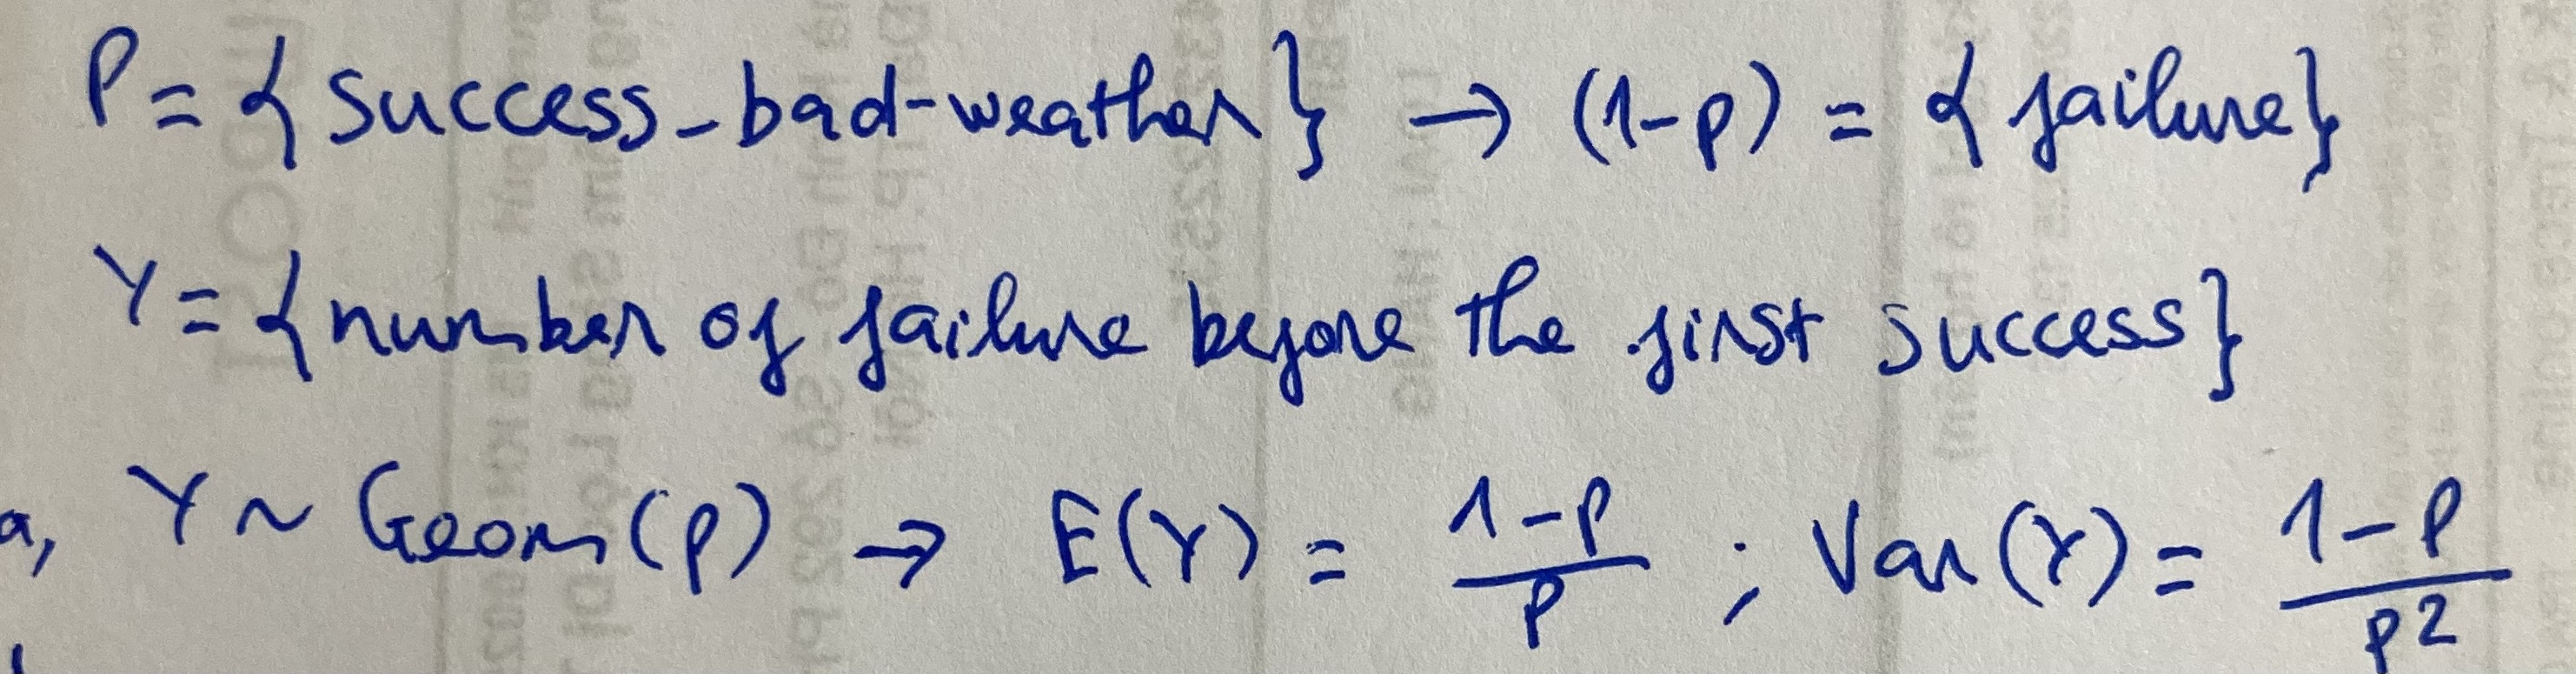 P = { success_bad-weather } → (1-p) = { failure }
Y = { number of failure before the first success }
a, Y ~ Geom(p) → E(Y) = 1-p/p ; Var(Y) = 1-p/p²